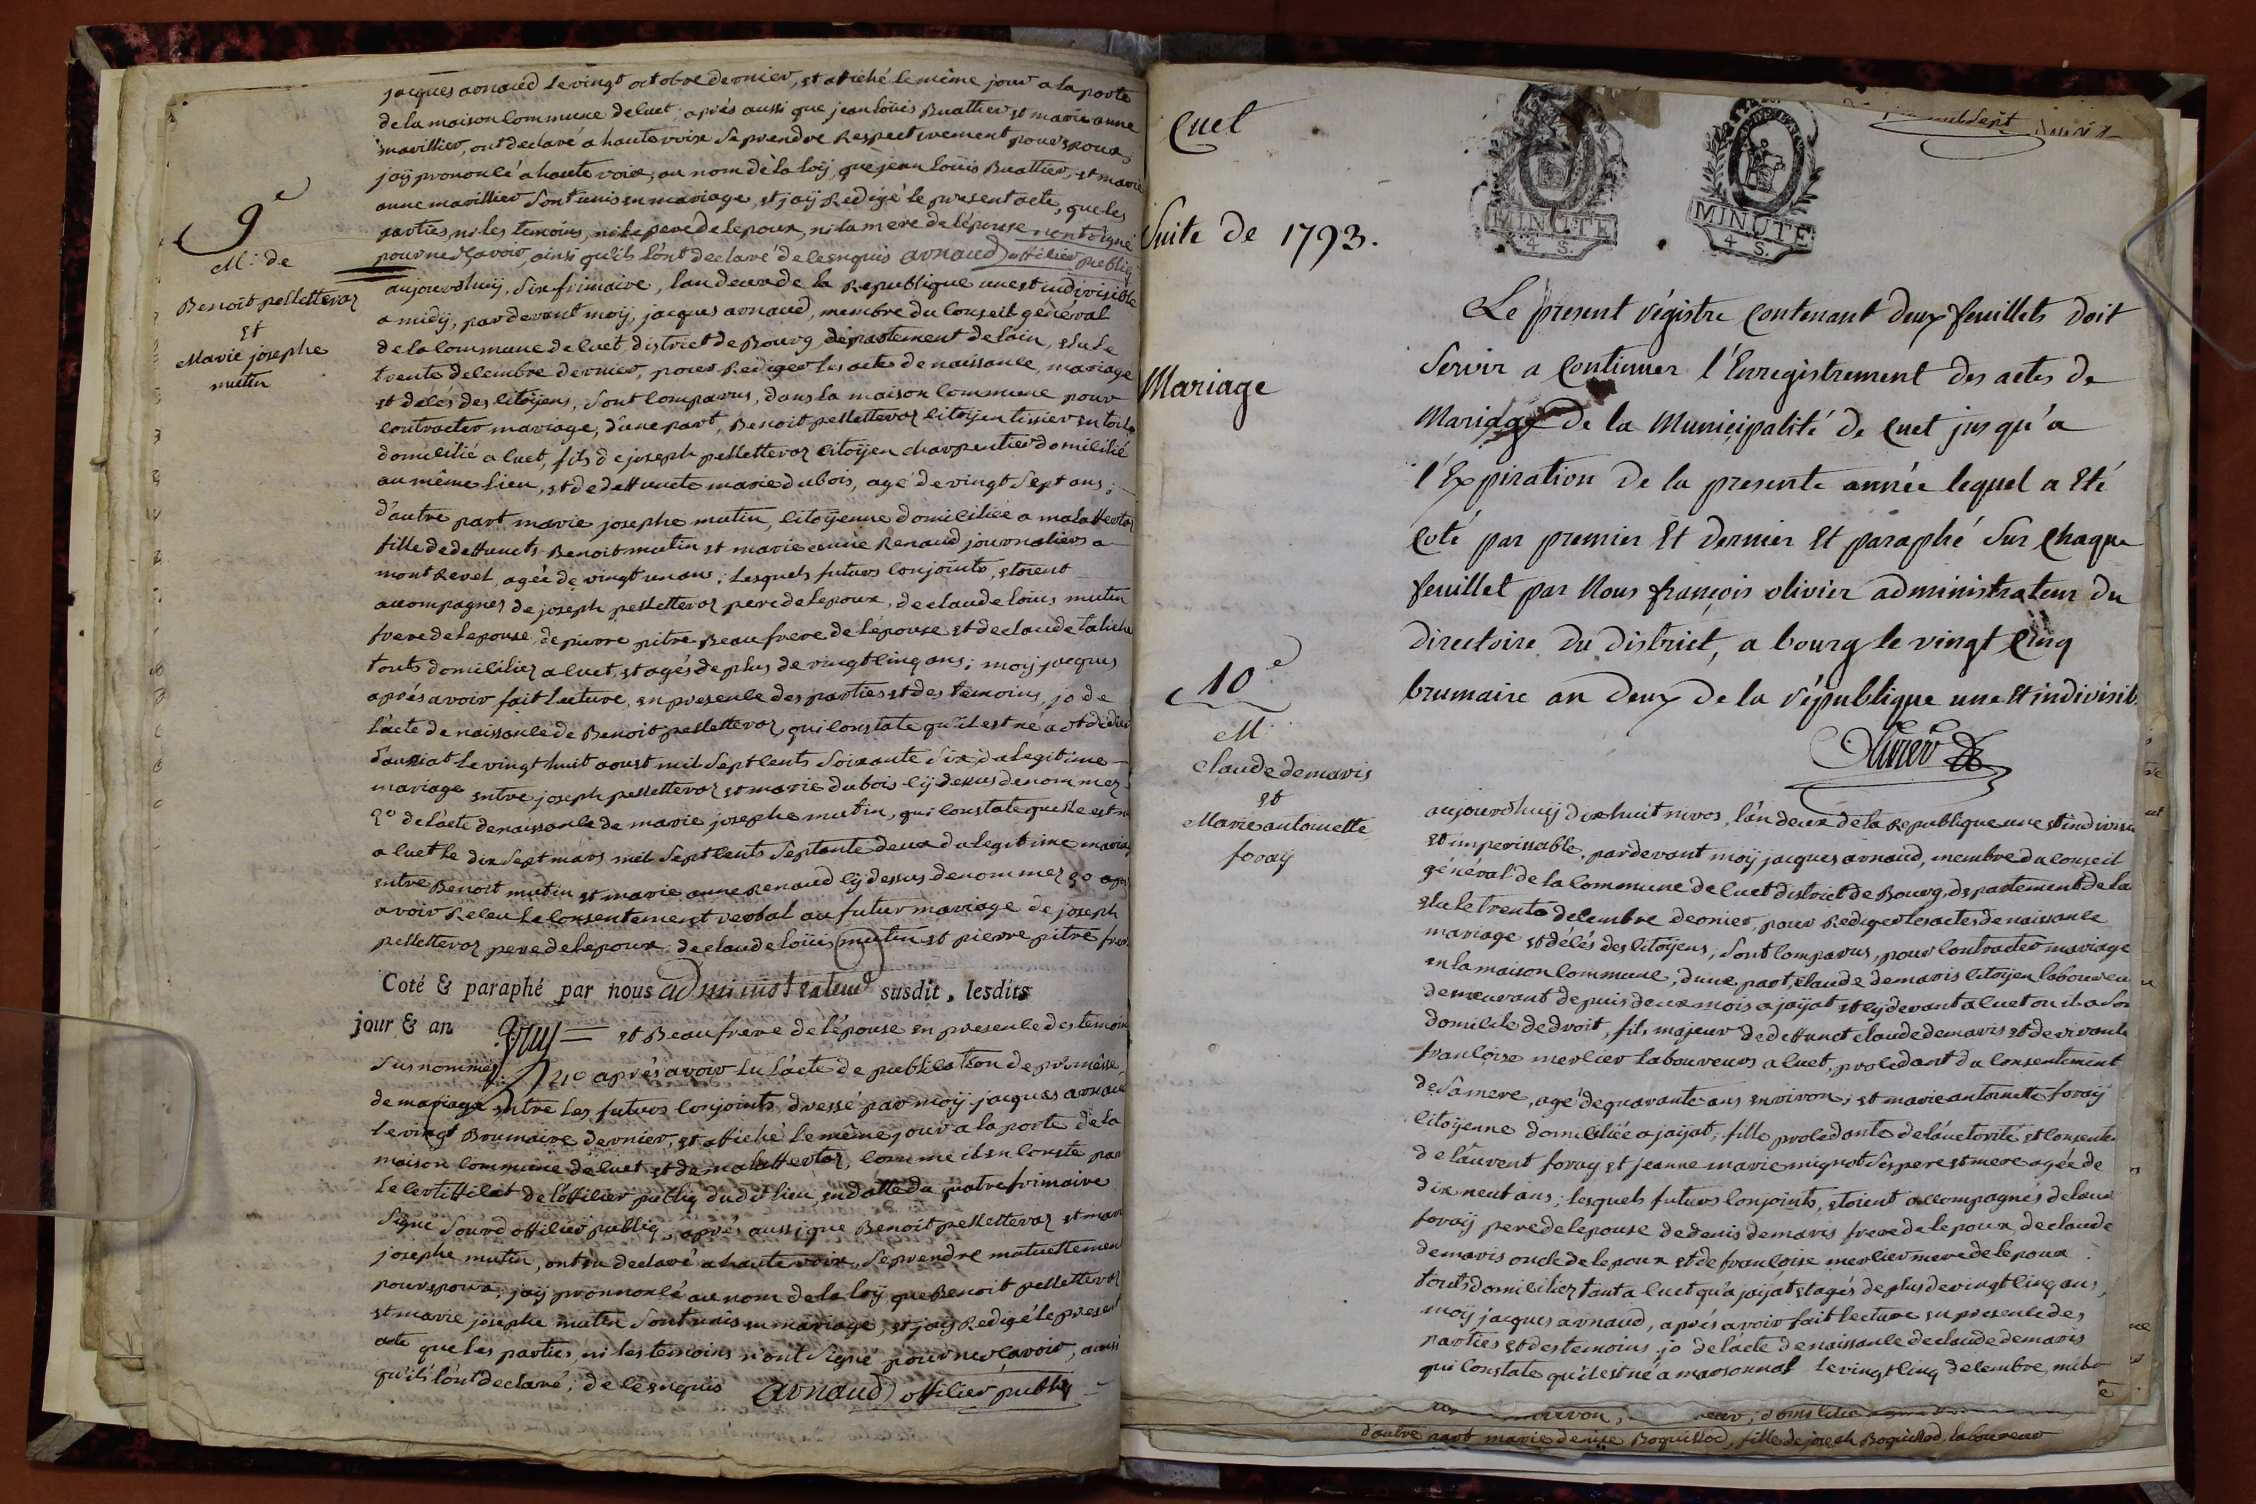 jacques arnaud le vingt octobre dernier, et afiché le même jour a la porte
de la maison Commune de Cuet, aprés aussi que jean loüis Buattier et marie anne
mavillier, ont declaré a haute voix se prendre Respectivement pour epoux,
jaÿ prononcé a haute voix, au nom dè la loÿ, que jean loüis Buattier, et marie
anne mavillier sont unis en mariage, et jaÿ Redigé le present acte, que les
parties, ni les temoins, ni le pere de lepoux, ni la mere de lépouse nont signé
pour ne sçavoir, ainsi qu'ils l'ont declaré de ce enquis arnaud officier public
9e
M. de
Benoit pelletteraz
et
Marie josephe
mutin
aujourdhuÿ, six frimaire, lan deux de la Republique une et indivisible
a midÿ, pardevant moÿ, jacques arnaud, membre du Conseil général
de la Commune de Cuet, district de Bourg, département de lain, elu le
trente decembre dernier, pour Rediger les actes de naissance, mariage
et décés des Citoÿens, sont Comparus, dans la maison Commune pour
contracter mariage, dune part, Benoit pelletteraz Citoÿen
domicilié a Cuet, fils de joseph pelletteraz Citoÿen charpentier domicilié
au même lieu, et de deffuncte marie dubois, agé de vingt sept ans;
d'autre part marie josephe mutin, Citoÿenne domiciliée a malaffertaz
fille de deffuncts Benoit mutin et marie anne Renaud journaliers a
montRevel, agée de vingt un ans; lesquels futurs Conjoints, etoient
accompagnez de joseph pelletteraz pere de lepoux, de claude loüis mutin
frere de lepouse, de pierre pitre Beau frere de lépouse et de claude
touts domiciliez a Cuet, et agés de plus de vingt cinq ans; moÿ jacques
aprés avoir fait lecture, en presence des parties et des temoins, 1o de
l'acte de naissance de Benoit pelletteraz, qui Constate qu'il est né a st didier
d'aussiat le vingt huit aoust mil sept cents soixante six, du legitime
mariage entre joseph pelletteraz et marie dubois cÿ dessus denommez
2o de l'acte de naissance de marie josephe mutin, qui Constate quelle est née
a Cuet le dix sept mars mil sept cents septante deux du legitime mariage
entre Benoit mutin et marie anne Renaud cÿ dessus denommez 3o aprés
avoir Recu le Consentement verbal au futur mariage de joseph
pelletteraz pere de lepoux, de claude loüis mutin et pierre pitre frere
Coté & paraphé par nous administrateur susdit, lesdits
jour & an
et Beau frere de l'épouse en presence des temoins
sus nommés 4o aprés avoir lu l'acte de publication de promesse
de mariage entre les futurs Conjoints, dressé par moÿ jacques arnaud
le vingt Brumaire dernier, et afiché le même jour a la porte de la
maison Commune de Cuet, et de malaffertaz, Comme il en Conste par
le Certifficat de lofficier public dudit lieu, en datte du quatre frimaire
signé officier public, aprés aussi que Benoit pelletteraz et marie
josephe mutin, ont declaré a haute voix, se prendre mutuellement
pour epoux; jaÿ prononcé au nom de la loÿ que Benoit pelletteraz
et marie josephe mutin sont unis en mariage, et jaÿ Redigé le present
acte que les parties, ni les temoins n'ont signé pour ne sçavoir, ainsi
qu'ils l'ont declaré, de ce enquis arnaud officier public
Cuet
Suite de 1793.
Mariage
MINUTE
4 S.
MINUTE
4 S.
Le present régistre Contenant deux feuillets doit
Servir a Continuer l'Enregistrement des actes de
Mariage de la Municipalité de Cuet jusqu'a
l'Expiration de la presente année lequel a Eté
Coté par premier Et dernier Et paraphé Sur Chaque
feuillet par Nous françois olivier administrateur du
directoire du District, a bourg le vingt Cinq
brumaire an deux de la république une Et indivisib
Olivier
10e
M.
Claude demaris
et
Marie antoinette
foraÿ
aujourdhuÿ dix huit nivos, l'an deux de la Republique une et indivisi
et imperissable, pardevant moÿ jacques arnaud, membre du Conseil
général de la Commune de Cuet district de Bourg, departement de la
elu le trente decembre dernier, pour Rediger les actes de naissance
mariage et décés des Citoÿens, sont Comparus, pour Contracter mariage
en la maison Commune, dune part, Claude demaris Citoÿen laboureu
demeurant depuis deux mois a jaÿat et cÿ devant a Cuet ou il a son
domicile de droit, fils majeur de deffunct claude demaris et de vivante
françoise merlier laboureurs a Cuet, procedant du Consentement
de sa mere, agé de quarante ans environ; et marie antoinette foraÿ
Citoÿenne domiciliée a jaÿat, fille procedante de l'auctorité et Consente
de laurent foraÿ et jeanne marie mignot ses pere et mere agée de
dix neuf ans; lesquels futurs Conjoints, etoient accompagnés de lau
foraÿ pere de lepouse de denis demaris frere de lepoux de claude
demaris oncle de lepoux et de françoise merlier mere de lepoux
touts domiciliez tant a Cuet qu'a jaÿat et agés de plus de vingt cinq ans,
moÿ jacques arnaud, aprés avoir fait lecture en presence des
parties et des temoins 1o de l'acte de naissance de claude demaris
qui Constate qu'il est né a marsonnas le vingt cinq decembre, mil
d'autre part marie denise Boquillod, fille de joseph Boquillod, laboureur